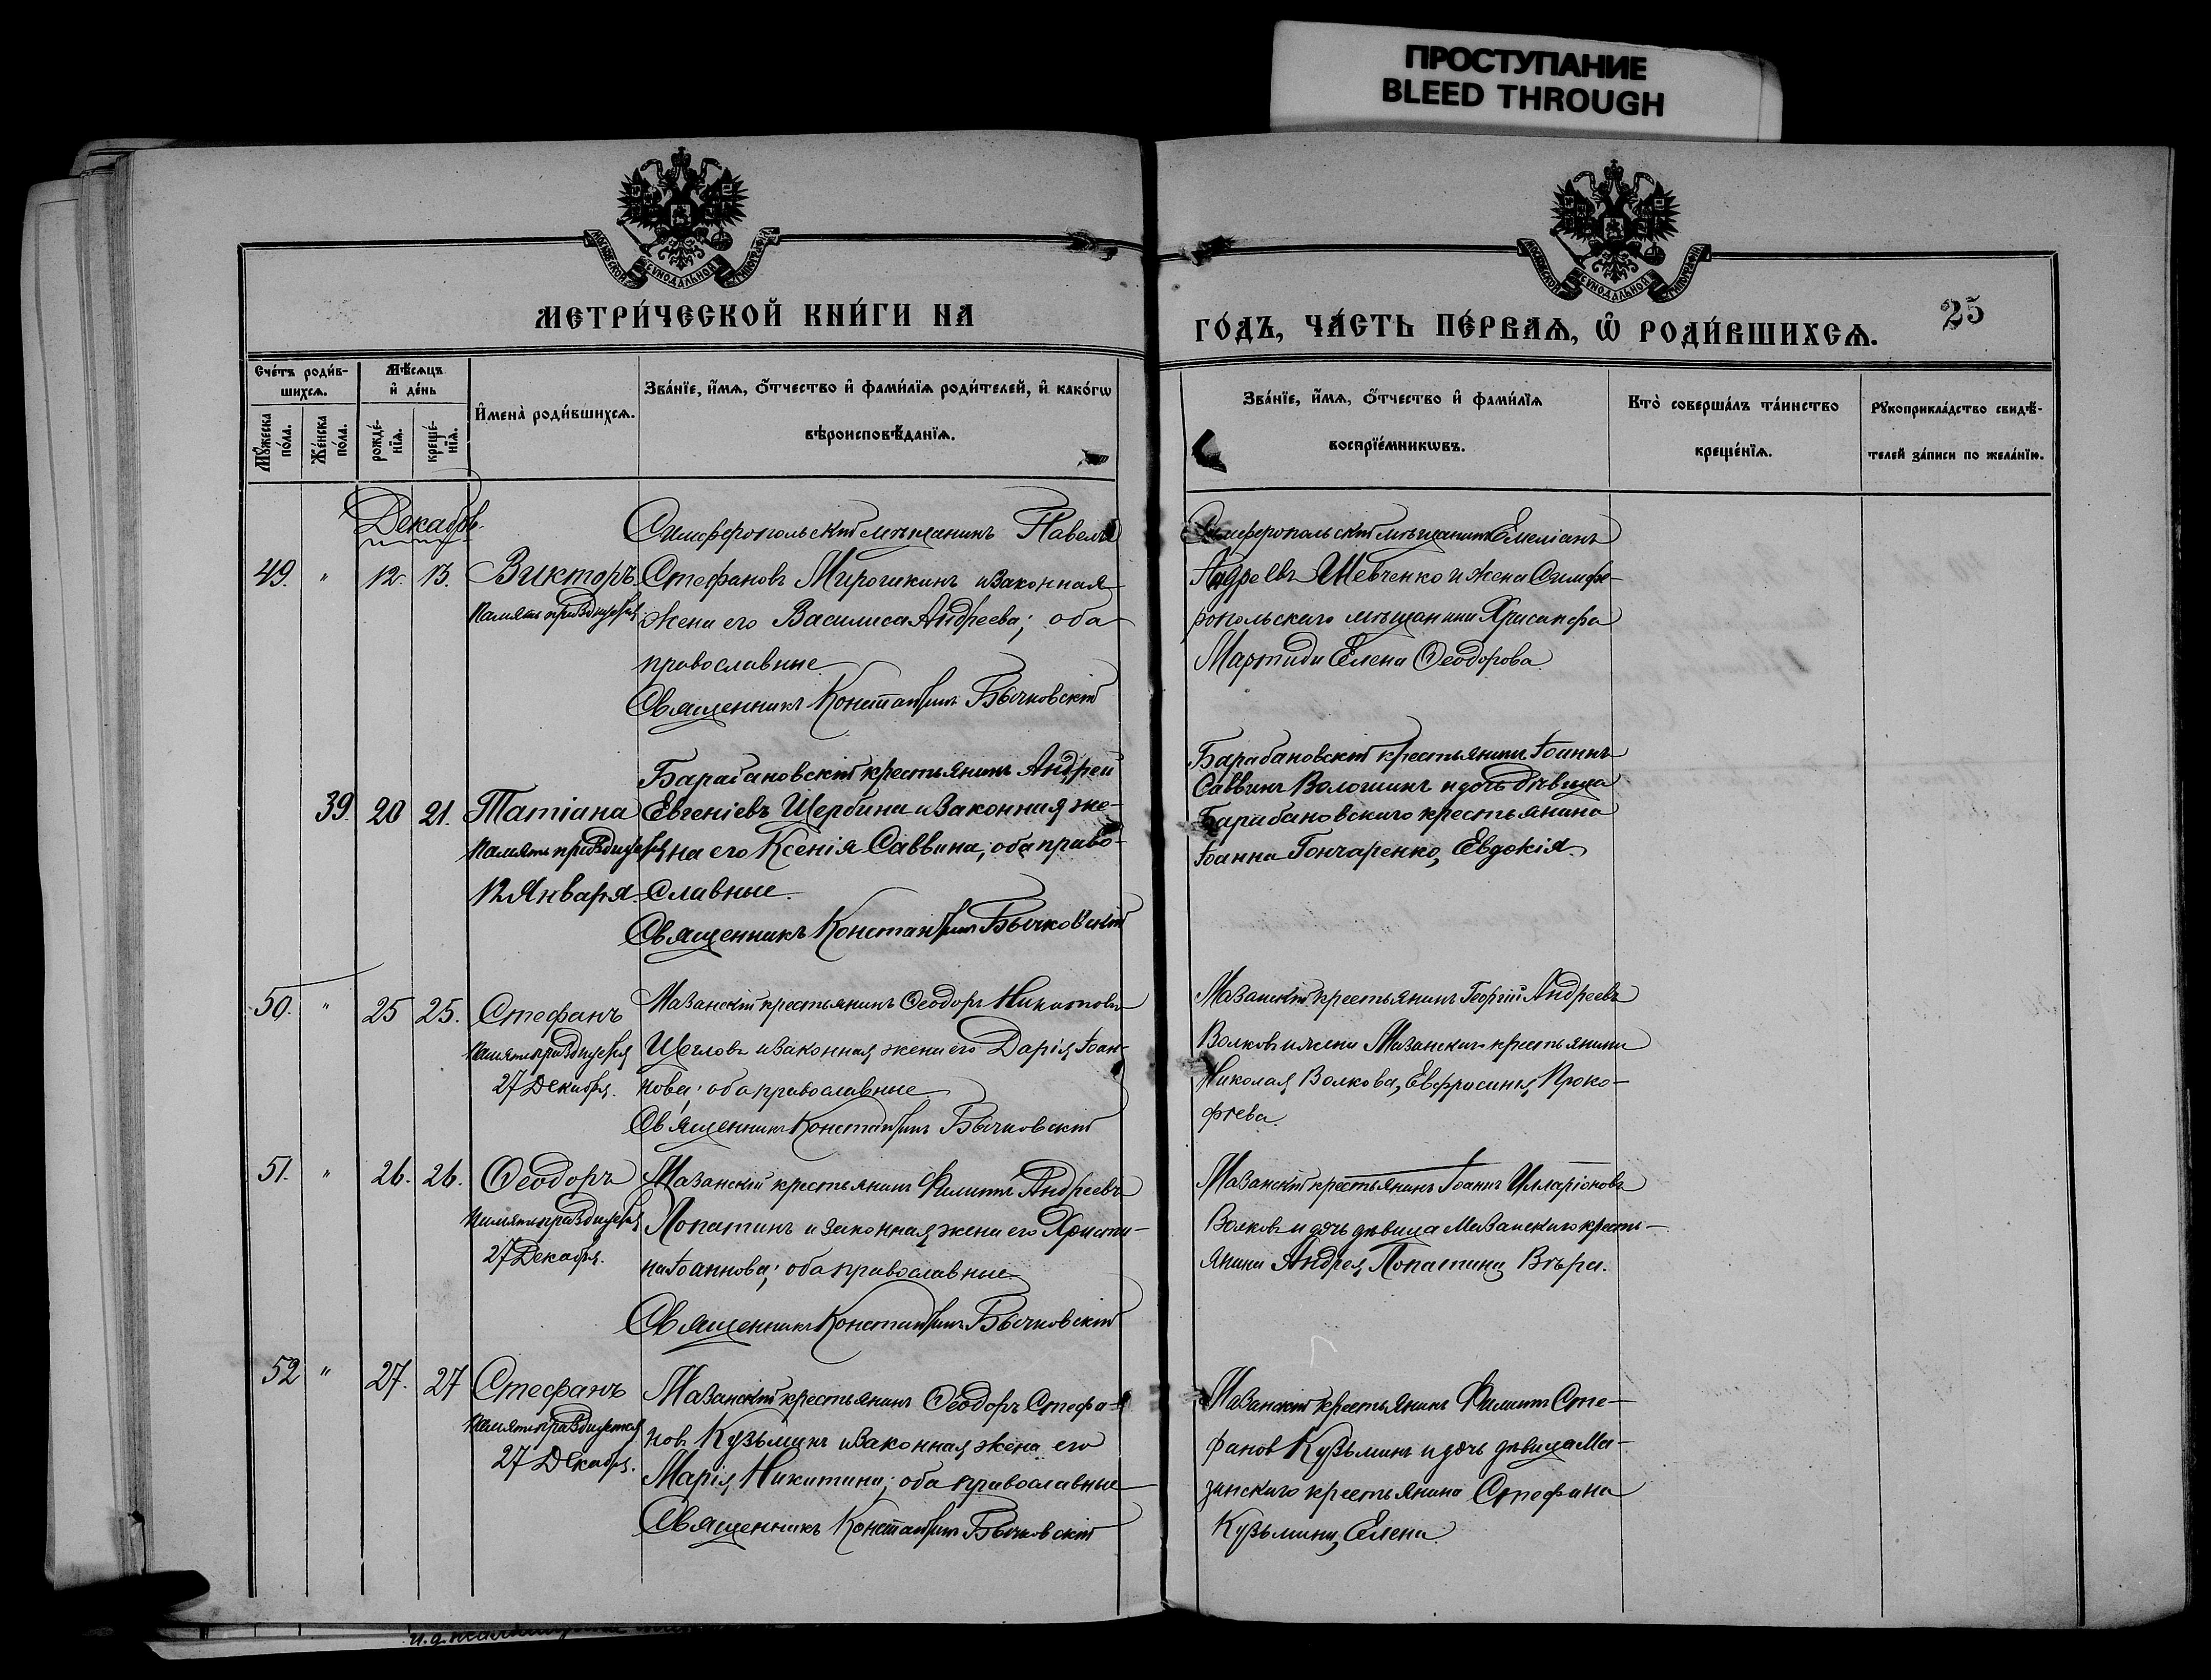 ПРОСТУПАНИЕ
BLEED THROUGH
МОСКОВСКОЙ СѴНОДАЛЬНОЙ ТИПОГРАФІИ
МЕТРИ́ЧЕСКОЙ КНИ́ГИ НА
МОСКОВСКОЙ СѴНОДАЛЬНОЙ ТИПОГРАФІИ
ГО́ДЪ, ЧА́СТЬ ПЕ́РВАѦ, Ѿ РОДИ́ВШИХСѦ.
25
Сче́тъ роди́в-
шихсѧ.
Мꙋ́жеска по́ла.
Же́нска по́ла.
Мѣ́сѧцъ
и҆ де́нь
рожде́-нїѧ.
креще́-нїѧ.
И҆мена̀ роди́вшихсѧ.
Зва́нїе, и҆́мѧ, ѻ҆́тчество и҆ фами́лїѧ роди́телей, и҆ како́гѡ
вѣроисповѣ́данїѧ.
Зва́нїе, и҆́мѧ, ѻ҆́тчество и҆ фами́лїѧ
воспрїе́мникѡвъ.
Кто̀ соверша́лъ та́инство
креще́нїѧ.
Рꙋкоприкла́дство свидѣ́-
телей за́писи по жела́нїю.
Декабрь.
49. " 12. 13. Викторъ.
Память празднуется
Симферопольскій мѣщанинъ Павелъ
Стефановъ Мирошкинъ и законная
жена его Василиса Андреева; оба
православные
Священникъ Константинъ Бычковскій
Симферопольскій мѣщанинъ Емеліанъ
Андреевъ Шевченко и жена Симфе-
ропольскаго мѣщанина Хрисанфа
Мартиди Елена Ѳеодорова.
39. 20 21. Татіана
Память празднуется
12 Января.
Барабановскій крестьянинъ Андрей
Евгеніевъ Щербина и законная же-
на его Ксенія Саввина; оба право-
славные.
Священникъ Константинъ Бычковскій
Барабановскій крестьянинъ Іоаннъ
Саввинъ Волошинъ и дочь дѣвица
Барабановскаго крестьянина
Іоанна Гончаренко, Евдокія.
50. " 25 25. Стефанъ
Память празднуется
27 Декабря.
Мазанскій крестьянинъ Ѳеодоръ
Щегловъ и законная жена его Дарія Іоан-
нова; оба православные
Священникъ Константинъ Бычковскій
Мазанскій крестьянинъ Георгій Андреевъ
Волковъ и жена Мазанскаго крестьянина
Николая Волкова, Евфросинія Проко-
фіева.
51. " 26. 26. Ѳеодоръ
Память празднуется
27 Декабря.
Мазанскій крестьянинъ Филиппъ Андреевъ
Лопатинъ и законная жена его Христи-
на Іоаннова; оба православные
Священникъ Константинъ Бычковскій
Мазанскій крестьянинъ Іоаннъ Илларіоновъ
Волковъ и дочь дѣвица Мазанскаго кресть-
янина Андрея Лопатина Вѣра.
52 " 27. 27 Стефанъ
Память празднуется
27 Декабря.
Мазанскій крестьянинъ Ѳеодоръ Стефа-
новъ Кузьминъ и законная жена его
Марія Никитина; оба православные
Священникъ Константинъ Бычковскій
Мазанскій крестьянинъ Филиппъ Сте-
фановъ Кузьминъ и дочь дѣвица Ма-
занскаго крестьянина Стефана
Кузьмина, Елена.